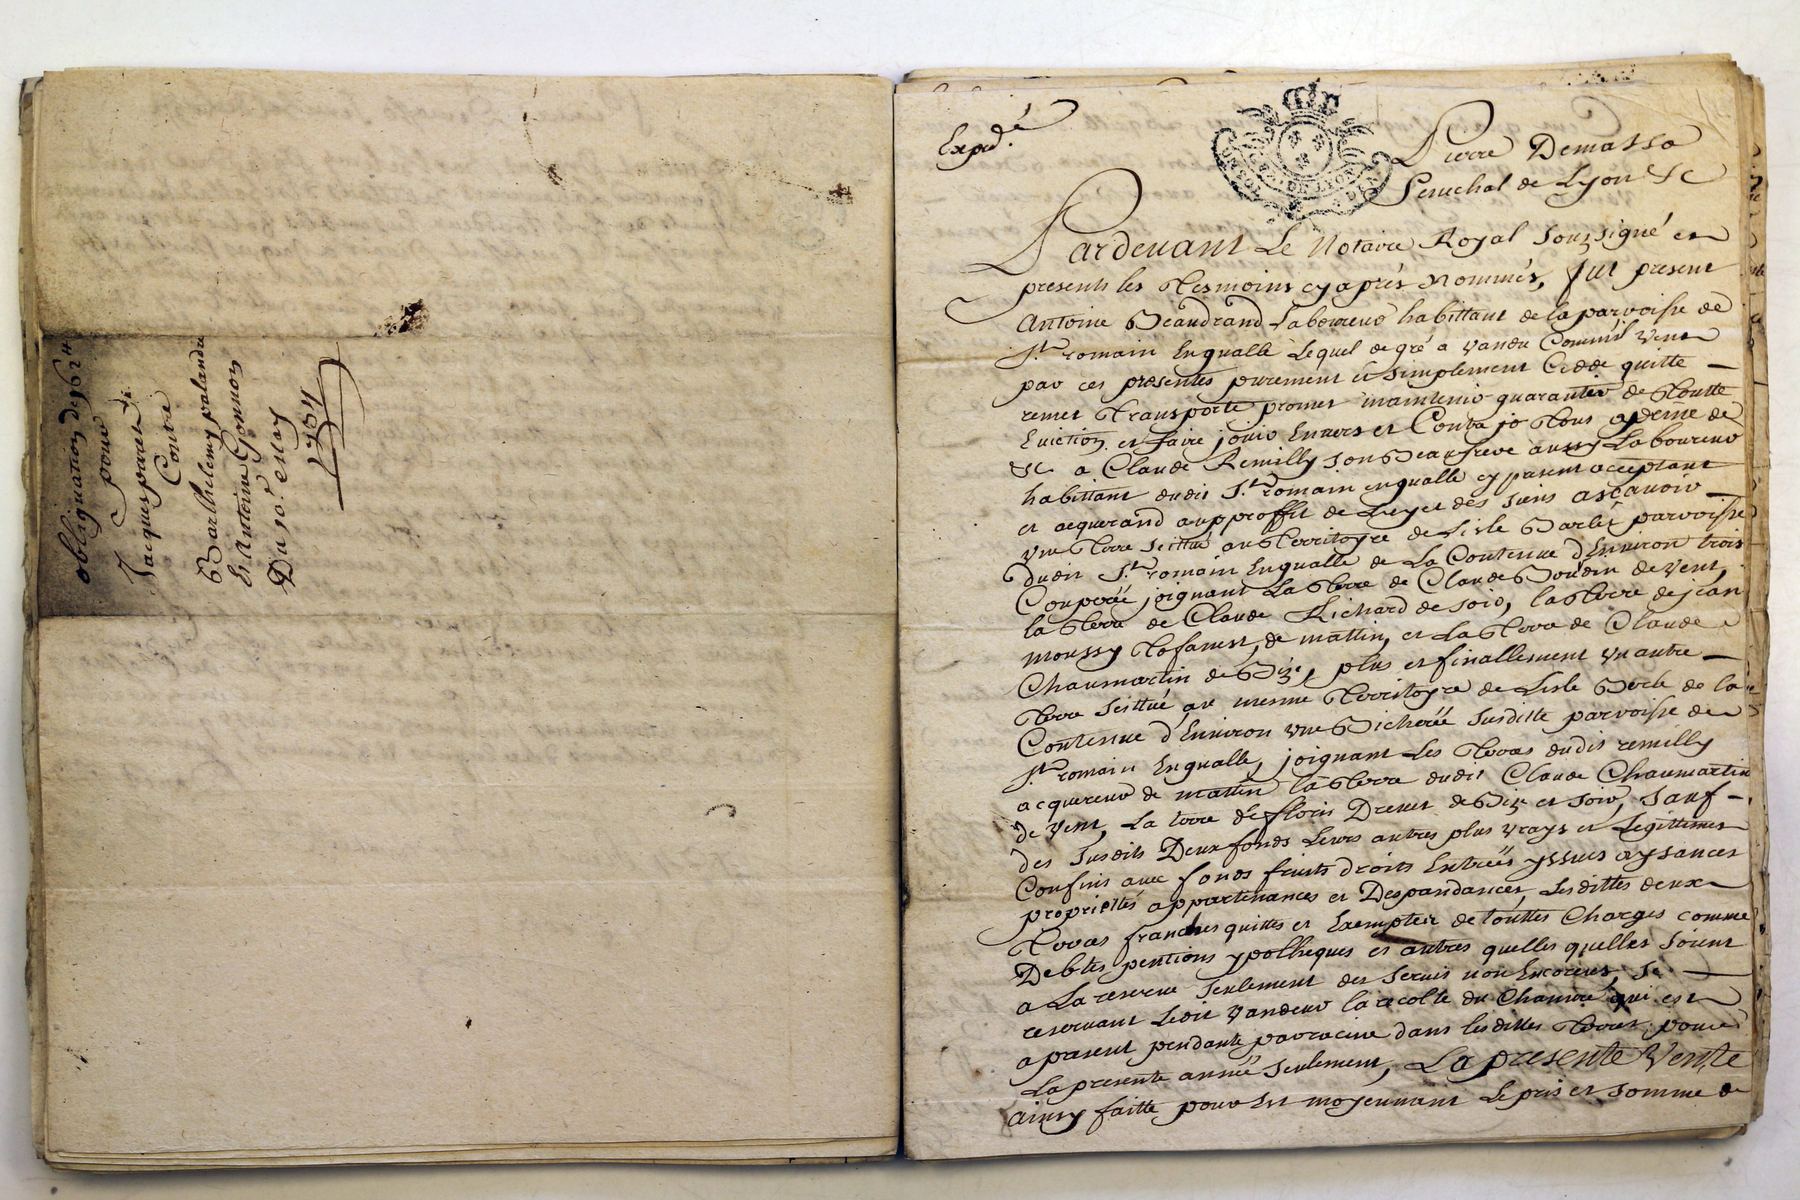 obligation de 962ᵗᵗ
pour
Jacques paret
Contre
Barthelemy palandre
Et Antoine Gonnon
Du 10.ᵉ
1734
Exped.ᵉ
GEN. DE LYON
Pierre Demassa
Senechal de Lyon &c
Pardevant Le Notaire Royal Soussigné et
presents les Tesmoins cy aprés Nommés, fut present
Antoine Beaudrand Laboureur habittant de la parroisse de
S.ᵗ romain Enqualle Lequel de gré a vandu Comm' il vent
par ces presentes purement et simplement Cedde quitte
remet Transporte promet maintenir guarantir de Toutte
Eviction et faire jouir Envers et Contre Tous a perne de
&c a Claude Remilly son Beaufrere aussy Laboureur
habittant dudit S.ᵗ romain enqualle cy present acceptant
et acquerand au proffit de Luy et des siens ascavoir
une Terre Scittué au Territoyre de Lisle Barlet parroisse
dudit S.ᵗ romain Enqualle de La Contenue d'Environ trois
Couperée, joignant La Terre de Claude Boudin de vent,
la Terre de Claude Richard de soir, la Terre de jean
moussy Tofanest, de mattin, et La Terre de Claude
Chaumartin de Bize, plus et finallement un autre
Terre Scittué au mesme Territoyre de Lisle de la
Contenue d'Environ une Bicherée Susditte parroisse de
S.ᵗ romain Enqualle, joignant Les Terres dudit remilly
acquereur de mattin la Terre dudit Claude Chaumartin
de Vent, La terre de floris Drevet de Bize et soir, Sauf
des Susdits Deux fonds Leurs autres plus vrays et Legittimes
Confins avec fonds fruits droits Entrées yssues aysances
propriettés appartenances et Despandances, Lesdittes deux
Terres franches quittes et Exemptes de touttes Charges comme
Debtes pentions ypotheques et autres quelles quelles soient
a La reserve seulement des Servis non Encoreus, se
reservant Ledit Vandeur la recolte du Chanvre qui est
a present pendante par racine dans lesdittes Terres pour
La presente année seulement, La presente Vente
ainsy faitte pour Et moyennant Le pris et somme de